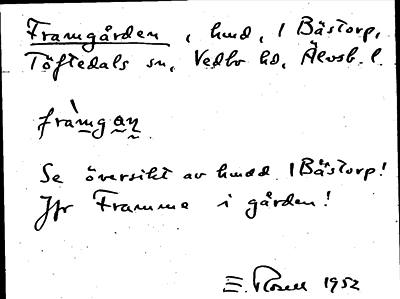 Framgården, hmd, 1 Bästorp,
Töftedals sn, Vedbo hd, Älvsb. l.
fràmgan
Se översikt av hmdd 1 Bästorp!
Jfr Framme i gården!
E. Rosell 1952